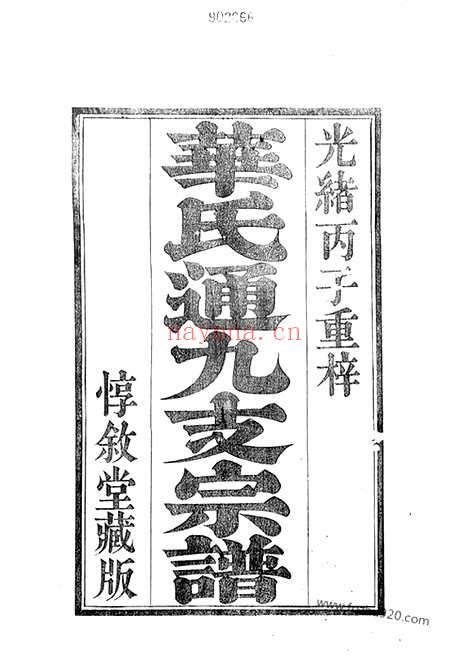 902296
光緒丙子重梓
華氏通九支宗譜
惇敘堂藏版
nayona.cn